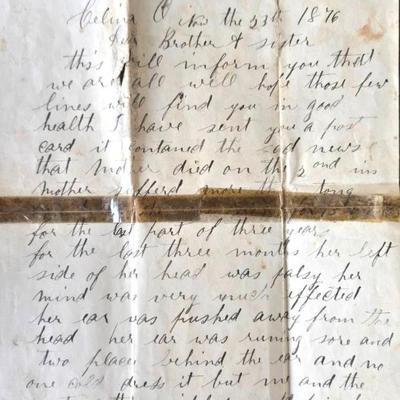 Celina O Nov the 23th 1876
Dear Brother & sister
this will inform you that
we are all well hope those few
lines will find you in good
health I have sent you a post
card it contaned the sad news
that mother died on the 2ond ins
mother sufferd more than tong
for the last part of three years
for the last three months her left
side of her head was palsy her
mind was very much effected
her ear was pushed away from the
head her ear was runing sore and
two places behind the ear and no
one cold dress it but me and the